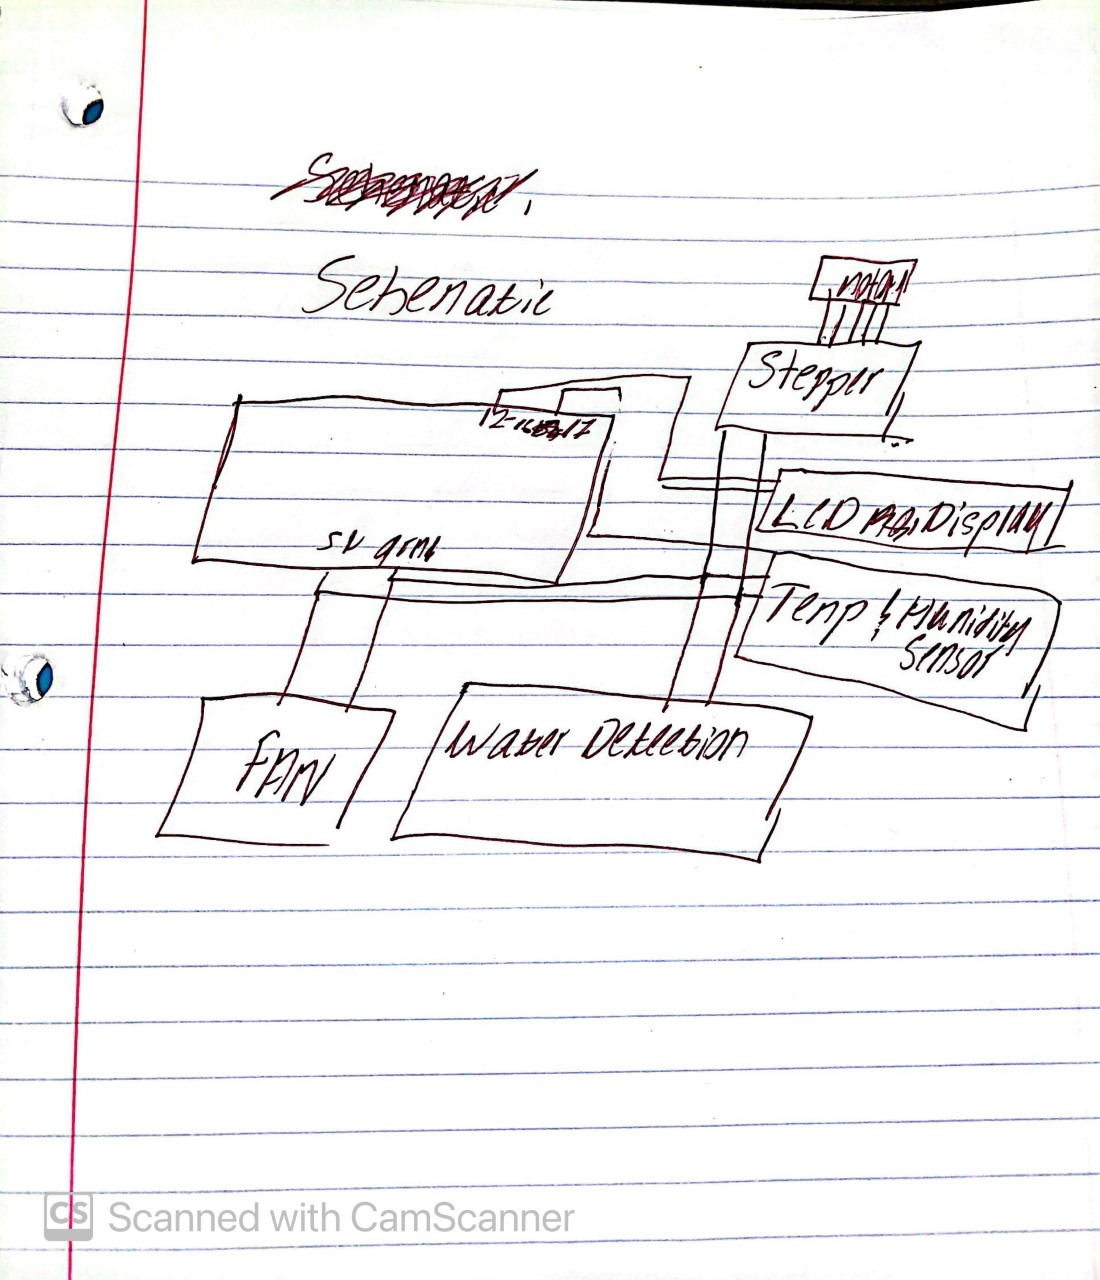 Schematic
motor
Stepper
12-
17
LCD Display
5V grnd
Temp & Humidity
Sensor
FAN
Water Detection
CS Scanned with CamScanner